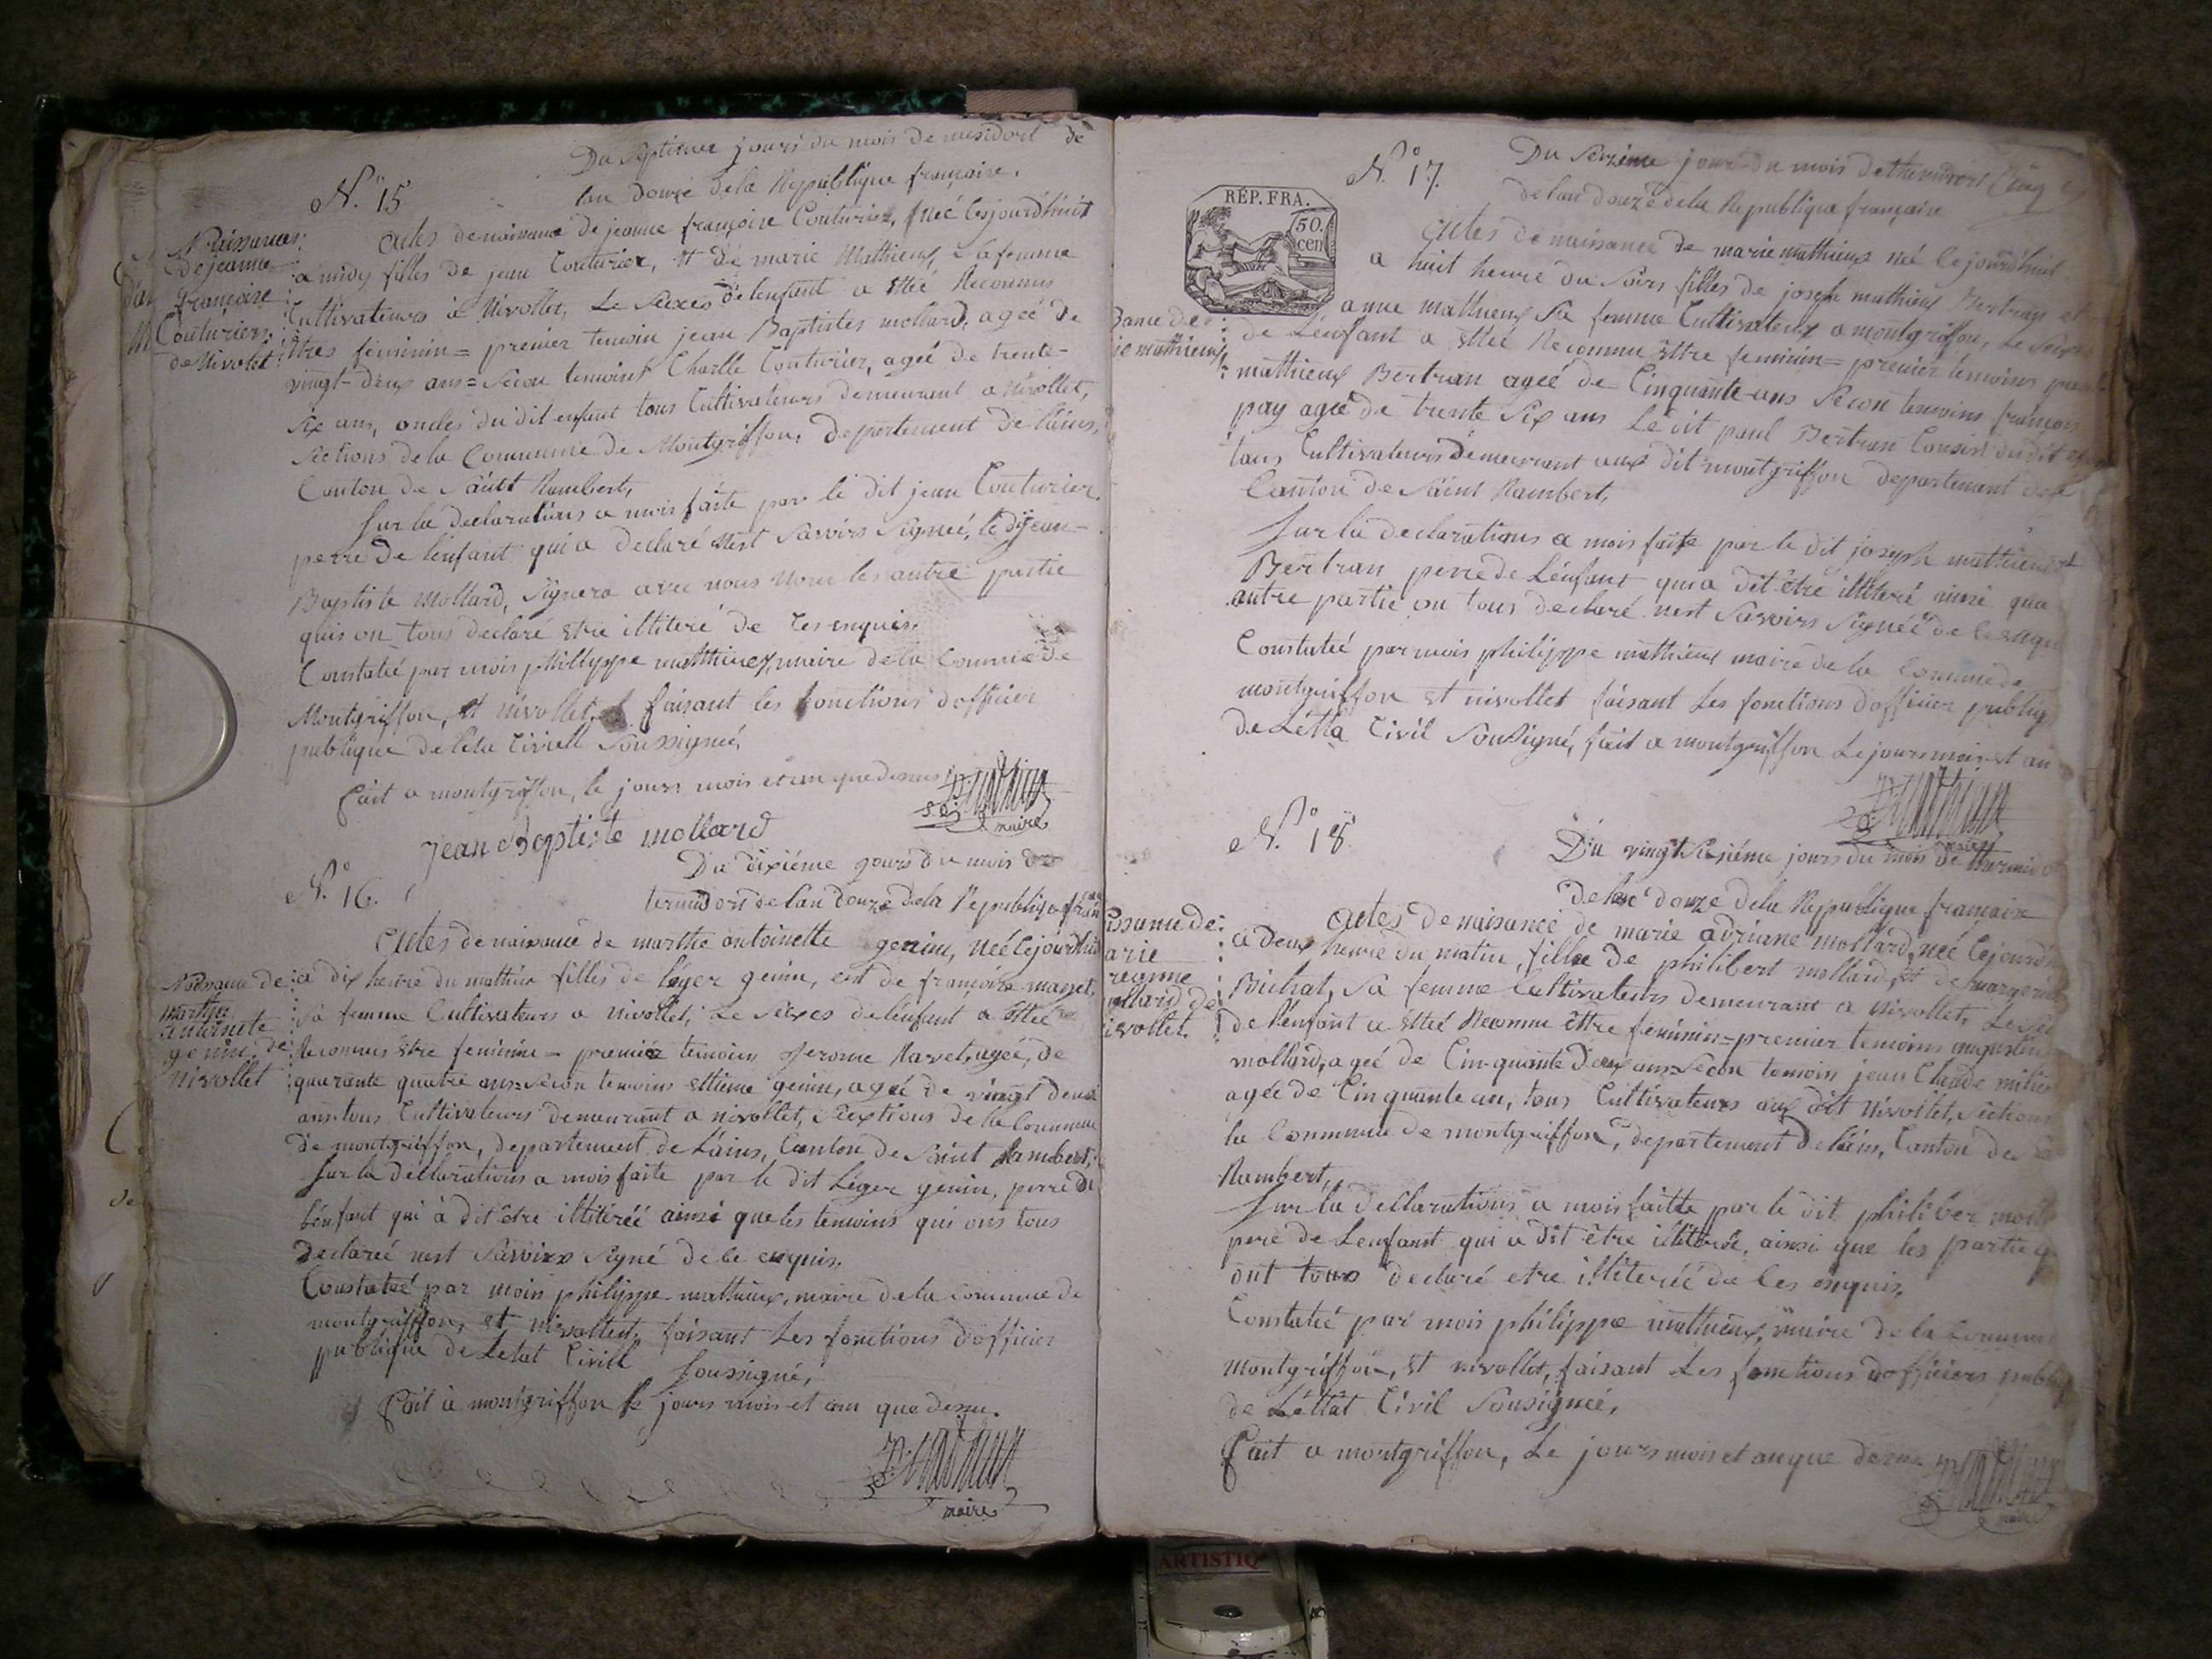 Du septieme jours du mois de mesidort de
N.o 15
lan douze dela Republique françaire.
Naissances
de jeanne
françoise
Couturier
de Nivolet
actes denaissance de jeanne françoise Couturier, neé Cejourdhuit
a midy filles de jean Couturier, et de marie Mathieux, Safemme
Cultivateurs à Nivollet, Le Sexes delenfant a ettée Reconnus
ettres feminin = premier temoin jean Baptistes mollard, ageé de
vingt-deux ans = Secon temoins Charlle Couturier, ageé de trente-
Six ans, oncles du dit enfant tous Cultivateurs demeurant a Nivollet,
Sections dela Commune de Montgriffon, departement de l'ains,
Canton de Saint Rambert,
Sur la declarations a mois faite par le dit jean Couturier
perre de lenfant qui a declaré nest Savoirs Signeé, le dit jean-
Baptiste Mollard, Signera avec nous non les autre partie
quis on tous declaré etre illiteré de Ces enquis.
Constateé par mois phillyppe matthieux maire dela Commune de
Montgriffon, et nivollet, faisant les fonctions dofficier
publique deleta Civill Soussigneé,
Fait a montgriffon, le jours mois et an que dessus
maire
jean Baptiste mollard
N.o 16.
Du dixiéme jours du mois de
termidort de lan douze dela Republique fran
Naissance de
marthe
antoinete
genin, de
nivollet
actes denaissance de marthe antoinette genin, Neé Cejourdhui
a dix heure du mathin filles de léger genin, ent de françoise masset,
Sa femme Cultivateurs a nivollet, Le Séxes delenfant a ettée
Reconnus être feminin = premier temoin Jerome Ravet, ageé, de
quarante quatre ans = Secon temoins ettiene genin, ageé de vingt deux
ans tous Cultivateurs demeurant a nivollet, Sections dela Commune
de montgriffon, departement de Láins, Canton de Saint Rambert,
Sur la déclarations a mois faite par le dit Léger genin, perre de
lénfant qui à dit être illitéréé ainsi que les temoins qui ons tous
declareé nest Savoirs Signé de Ce enquis.
Constateé par mois philyppe matthieux, maire dela Commune de
montgriffon, et nivollet, faisant Les fonctions dofficier
publique de Letat Civill Soussigné,
Fait à montgriffon le jours mois et an que dessu.
maire
N.o 17.
RÉP. FRA.
50.
cen
Du Seizieme jours du mois dethermidort
delan douze dela Republique françaire
actes de naissance de marie mathieux né le jourdhuit
a huit heure du Soirs filles de joseph mathieux Bertran et
anne mathieux Sa femme Cultivateux a montgriffon, Le Sexe
de Lénfant a ettéé Reconnu êttre feminin = premier temoins paul
mathieux Bertran ageé de Cinquante ans Secon temoins françois
pay ageé de trente Six ans Ledit paul Bertran Cousin dudit
tous Cultivateurs demeurant aux dit montgriffon departemant
Canton de Saint Rambert,
Sur la declarations a mois faite par le dit joseph mathieux
Bertran perre de Lénfant qui a dit être illiteré ainsi que
autre partie on tous declaré nest Savoirs Signéé de Ce enqu
Constateé par mois philippe mathieux maire de la Commune de
montgriffon et nivollet faisant Les fonctions dofficier publiq
de Létta Civil Sousigné, fait a montgriffon Le jours mois et an
N.o 18.
Du vingt Siziéme jours du mois de
delan douze dela Republique francaire
issance de
arie
reanne
ollard de
ivollet.
actes de naisance de marie adriane mollard, neé Cejourd
a deux heure du matin, fillee de philibert mollard, et de margerite
Bichat, Sa femme Cultivateurs demeurant a nivollet, Le
de Lénfant a ettéé Reconnu être feminin = premier temoins augustin
mollard, ageé de Cinquante deux ans = Secon temoin jean Claude
ageé de Cinquante an, tous Cultivateurs aux dit Nivollet, Sections
la Commune de montgriffon, departement de láins, Canton de
Rambert,
Sur la declarations a mois faitte par le dit philiber moll
pere de Lenfant qui a dit être illitereé, ainsi que les partie q
ont tous declaré etre illitereé de Ces enquis.
Constateé par mois philippe matthieux, maire dela Commun
Montgriffon, et nivollet, faisant Les fonctions dofficiers publiq
de Léttat Civil Sousigneé,
Fait a montgriffon, Le jours mois et an que dessu
ARTISTIQ